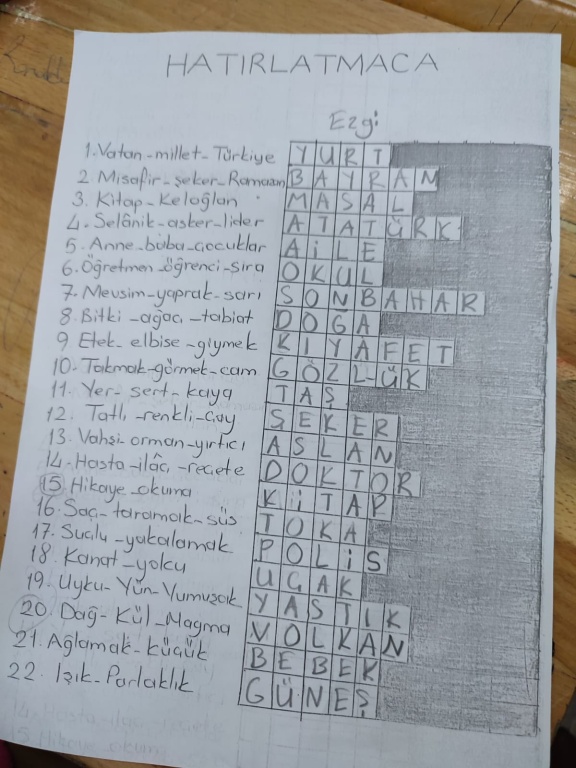 HATIRLATMACA
Ezgi
1. Vatan-millet-Türkiye YURT
2. Misafir-şeker-Ramazan BAYRAM
3. Kitap-Keloğlan MASAL
4. Selânik-asker-lider ATATÜRK
5. Anne-baba-çocuklar AİLE
6. Öğretmen-öğrenci-sıra OKUL
7. Mevsim-yaprak-sarı SONBAHAR
8. Bitki-ağaç-tabiat DOĞA
9 Etek-elbise-giymek KIYAFET
10. Takmak-görmek-cam GÖZLÜK
11. Yer-sert-kaya TAŞ
12. Tatlı-renkli-çay ŞEKER
13. Vahşi-orman-yırtıcı ASLAN
14. Hasta-ilâç-reçete DOKTOR
15. Hikaye-okuma KİTAP
16. Saç-taramak-süs TOKA
17. Suçlu-yakalamak POLİS
18. Kanat-yolcu UÇAK
19. Uyku-Yün-Yumuşak YASTIK
20. Dağ-Kül-Magma VOLKAN
21. Ağlamak-küçük BEBEK
22. Işık-Parlaklık GÜNEŞ